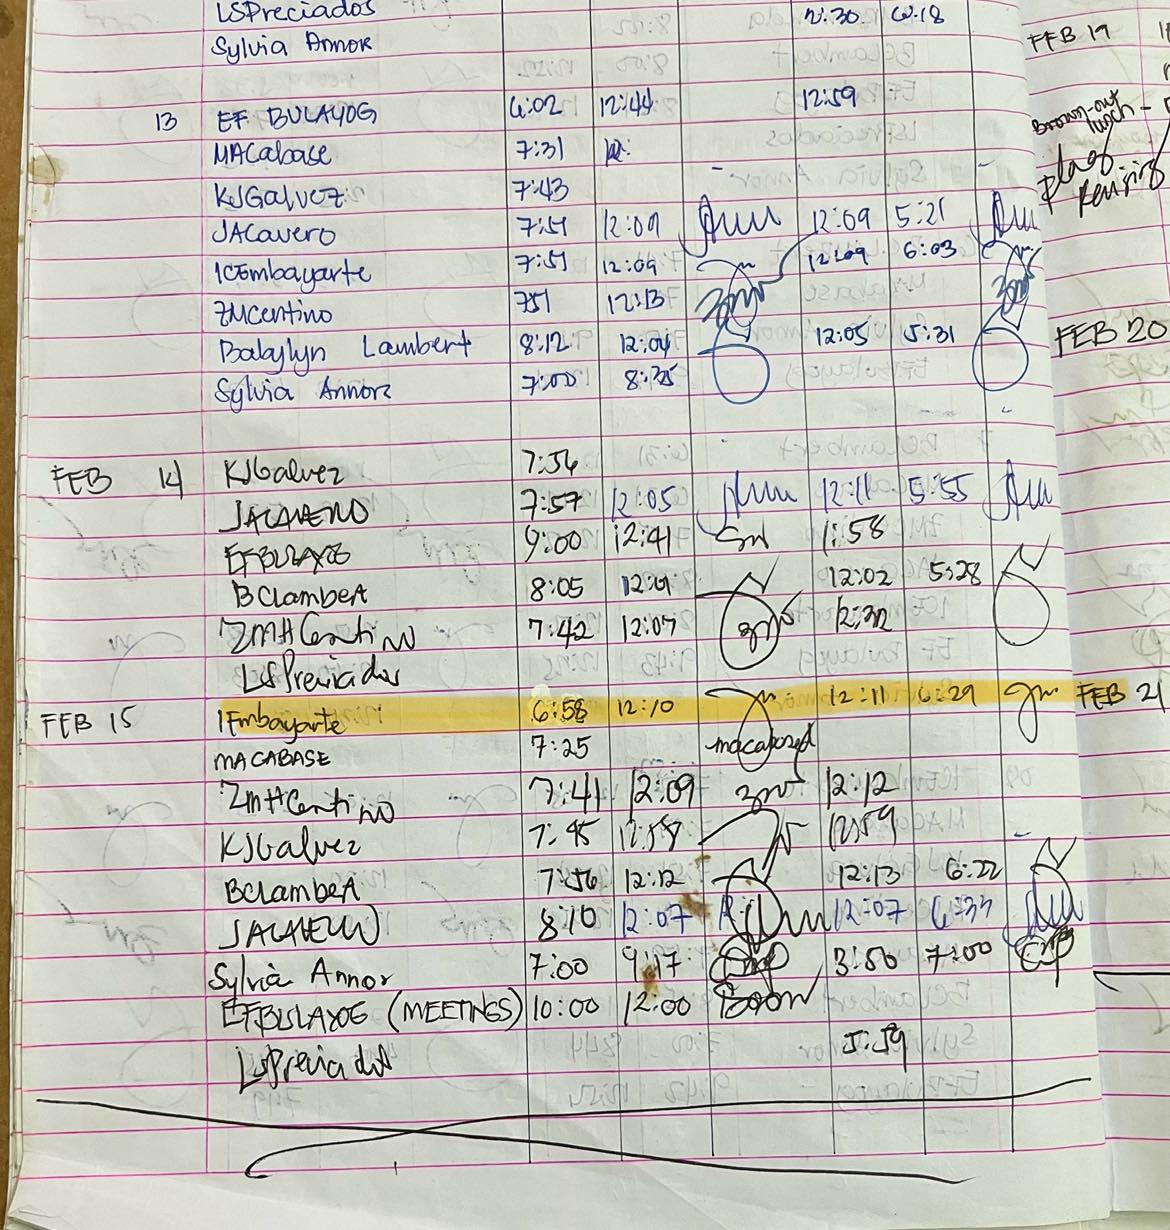 LSPreciados 12:30 6:18
Sylvia Annor
13 EF BULAYOG 6:02 12:44 12:59
MACabase 7:31
KJGalvez 7:43
JACavero 7:51 12:09 12:09 5:21
ICEmbayarte 7:51 12:09 12:09 6:03
ZMCentino 751 12:13
Babylyn Lambert 8:12 12:04 12:05 5:31
Sylvia Annor 7:00 8:35
FEB 14 KJGalvez 7:56
JACAVERO 7:57 12:05 12:11 5:55
EFBULAYOG 9:00 12:41 1:58
BClambert 8:05 12:01 12:02 5:28
ZMHCentino 7:42 12:07 12:32
LSPreciados
FEB 15 IEmbayarte 6:58 12:10 12:11 6:29
MACABASE 7:25 macabased
ZMHCentino 7:41 12:09 12:12
KJGalvez 7:45 12:58 12:59
BClambert 7:56 12:12 12:13 6:22
JACAVERO 8:10 12:07 12:07 6:33
Sylvia Annor 7:00 9:17 3:50 7:00
EFBULAYOG (MEETINGS) 10:00 12:00
LSPreciados 5:59
FEB 19
Brown-out
lunch -
FEB 20
FEB 21